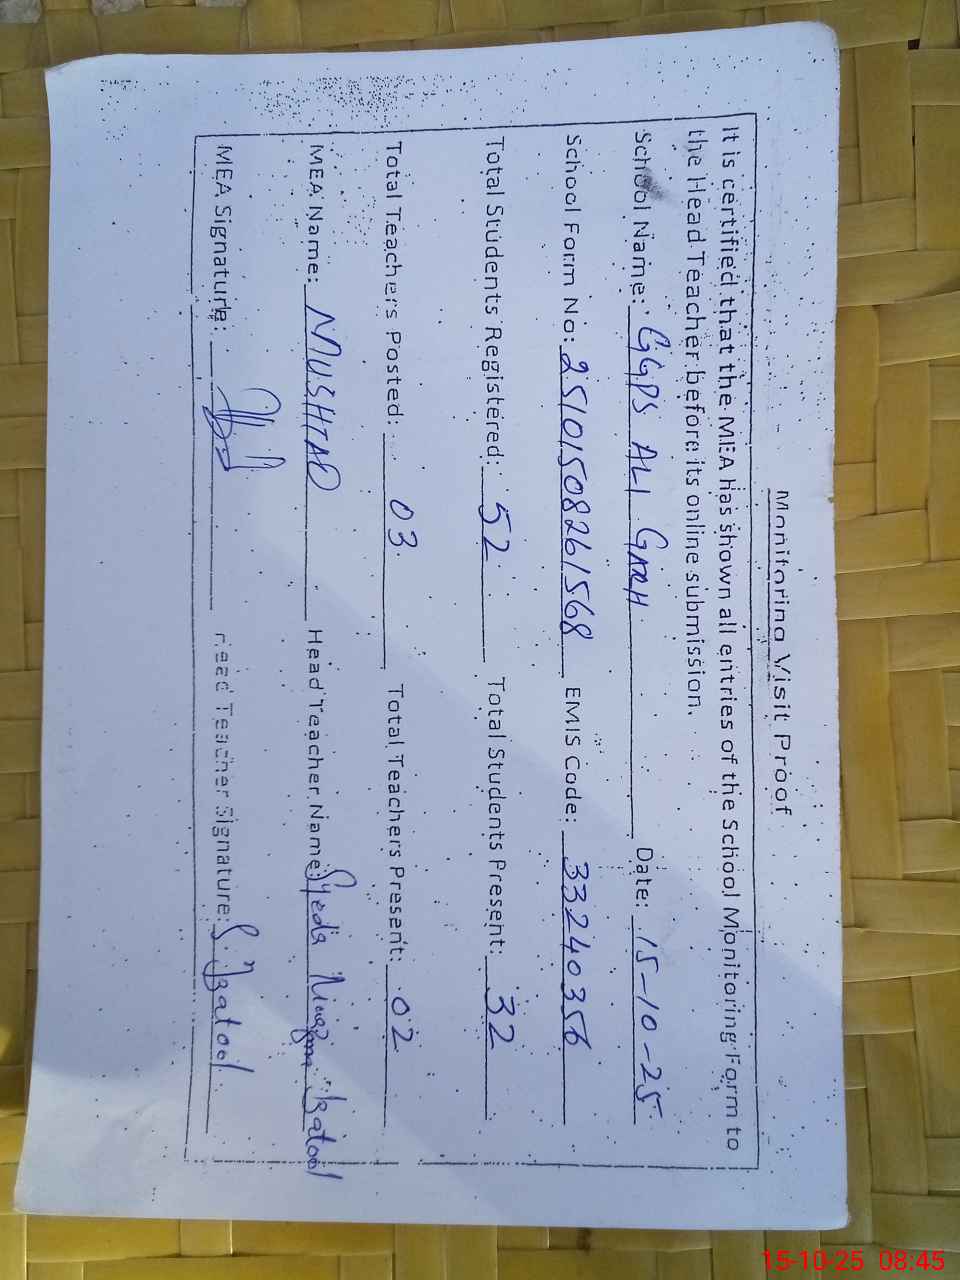 Monitoring Visit Proof
It is certified that the MEA has shown all entries of the School Monitoring Form to
the Head Teacher before its online submission.
School Name: GGPS ALI GARH Date: 15-10-25
School Form No: 25101508261568 EMIS Code: 33240356
Total Students Registered: 52 Total Students Present: 32
Total Teachers Posted: 03 Total Teachers Present: 02
MEA Name: MUSHTAQ Head Teacher Name: Syeda Batool
MEA Signature: Head Teacher Signature: S. Batool
15-10-25 08:45